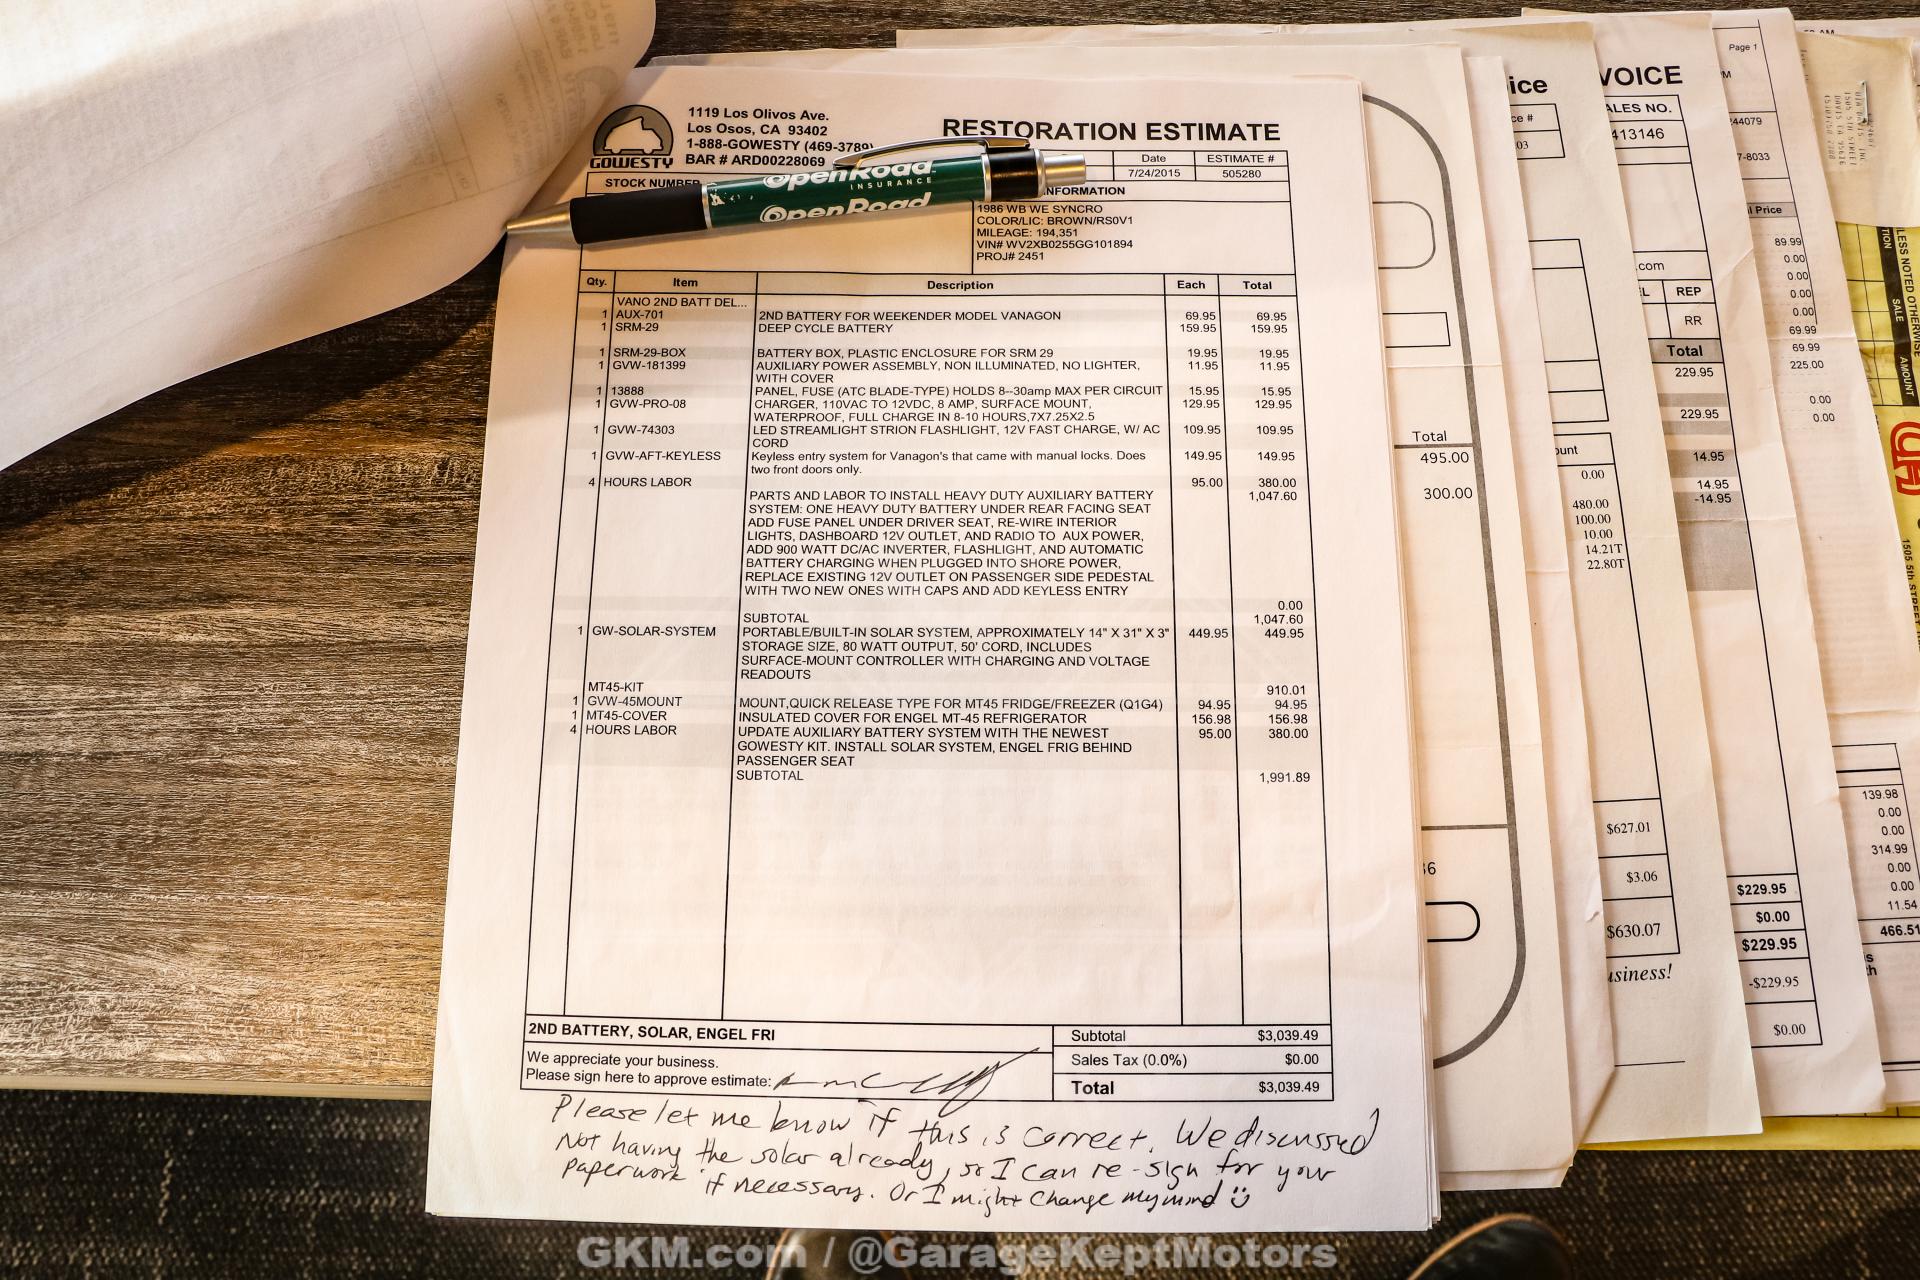 GOWESTY
1119 Los Olivos Ave.
Los Osos, CA 93402
1-888-GOWESTY (469-3789)
BAR # ARD00228069
RESTORATION ESTIMATE
Date ESTIMATE #
7/24/2015 505280
STOCK NUMBER
NFORMATION
OpenRoad
INSURANCE
OpenRoad
1986 WB WE SYNCRO
COLOR/LIC: BROWN/RS0V1
MILEAGE: 194,351
VIN# WV2XB0255GG101894
PROJ# 2451
Qty. Item Description Each Total
VANO 2ND BATT DEL...
1 AUX-701 2ND BATTERY FOR WEEKENDER MODEL VANAGON 69.95 69.95
1 SRM-29 DEEP CYCLE BATTERY 159.95 159.95
1 SRM-29-BOX BATTERY BOX, PLASTIC ENCLOSURE FOR SRM 29 19.95 19.95
1 GVW-181399 AUXILIARY POWER ASSEMBLY, NON ILLUMINATED, NO LIGHTER, 11.95 11.95
WITH COVER
1 13888 PANEL, FUSE (ATC BLADE-TYPE) HOLDS 8--30amp MAX PER CIRCUIT 15.95 15.95
1 GVW-PRO-08 CHARGER, 110VAC TO 12VDC, 8 AMP, SURFACE MOUNT, 129.95 129.95
WATERPROOF, FULL CHARGE IN 8-10 HOURS,7X7.25X2.5
1 GVW-74303 LED STREAMLIGHT STRION FLASHLIGHT, 12V FAST CHARGE, W/ AC 109.95 109.95
CORD
1 GVW-AFT-KEYLESS Keyless entry system for Vanagon's that came with manual locks. Does 149.95 149.95
two front doors only.
4 HOURS LABOR 95.00 380.00
PARTS AND LABOR TO INSTALL HEAVY DUTY AUXILIARY BATTERY 1,047.60
SYSTEM: ONE HEAVY DUTY BATTERY UNDER REAR FACING SEAT
ADD FUSE PANEL UNDER DRIVER SEAT, RE-WIRE INTERIOR
LIGHTS, DASHBOARD 12V OUTLET, AND RADIO TO AUX POWER,
ADD 900 WATT DC/AC INVERTER, FLASHLIGHT, AND AUTOMATIC
BATTERY CHARGING WHEN PLUGGED INTO SHORE POWER,
REPLACE EXISTING 12V OUTLET ON PASSENGER SIDE PEDESTAL
WITH TWO NEW ONES WITH CAPS AND ADD KEYLESS ENTRY
0.00
SUBTOTAL 1,047.60
1 GW-SOLAR-SYSTEM PORTABLE/BUILT-IN SOLAR SYSTEM, APPROXIMATELY 14" X 31" X 3" 449.95 449.95
STORAGE SIZE, 80 WATT OUTPUT, 50' CORD, INCLUDES
SURFACE-MOUNT CONTROLLER WITH CHARGING AND VOLTAGE
READOUTS
MT45-KIT 910.01
1 GVW-45MOUNT MOUNT,QUICK RELEASE TYPE FOR MT45 FRIDGE/FREEZER (Q1G4) 94.95 94.95
1 MT45-COVER INSULATED COVER FOR ENGEL MT-45 REFRIGERATOR 156.98 156.98
4 HOURS LABOR UPDATE AUXILIARY BATTERY SYSTEM WITH THE NEWEST 95.00 380.00
GOWESTY KIT. INSTALL SOLAR SYSTEM, ENGEL FRIG BEHIND
PASSENGER SEAT
SUBTOTAL 1,991.89
2ND BATTERY, SOLAR, ENGEL FRI
We appreciate your business.
Please sign here to approve estimate:
Subtotal $3,039.49
Sales Tax (0.0%) $0.00
Total $3,039.49
Please let me know if this is correct. We discussed
Not having the solar already, so I can re-sign for your
paperwork if necessary. Or I might change my mind
Total
495.00
300.00
36
ice
ce #
03
ount
0.00
480.00
100.00
10.00
14.21T
22.80T
$627.01
$3.06
$630.07
usiness!
VOICE
ALES NO.
413146
.com
L REP
RR
Total
229.95
229.95
14.95
14.95
-14.95
$229.95
$0.00
$229.95
-$229.95
$0.00
Page 1
PM
44079
7-8033
l Price
89.99
0.00
0.00
0.00
0.00
69.99
69.99
225.00
0.00
0.00
139.98
0.00
0.00
314.99
0.00
0.00
11.54
466.51
LESS NOTED OTHERWISE
SALE
AMOUNT
1505 5th STREET
GKM.com / @GarageKeptMotors